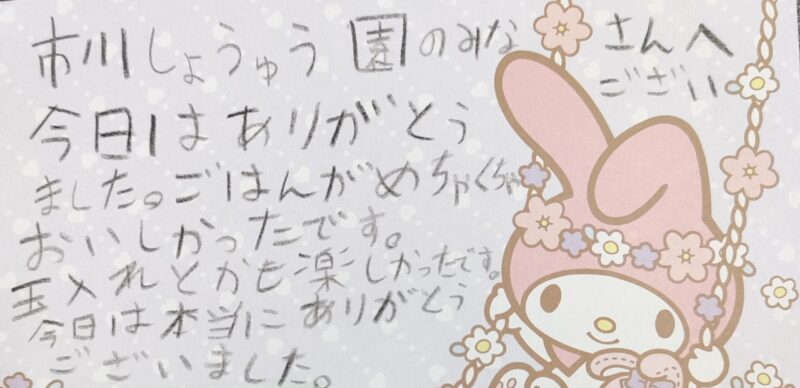 市川しょうゅう園のみなさんへ
今日はありがとうござい
ました。ごはんがめちゃくちゃ
おいしかったです。
玉入れとかも楽しかったです。
今日は本当にありがとう
ございました。